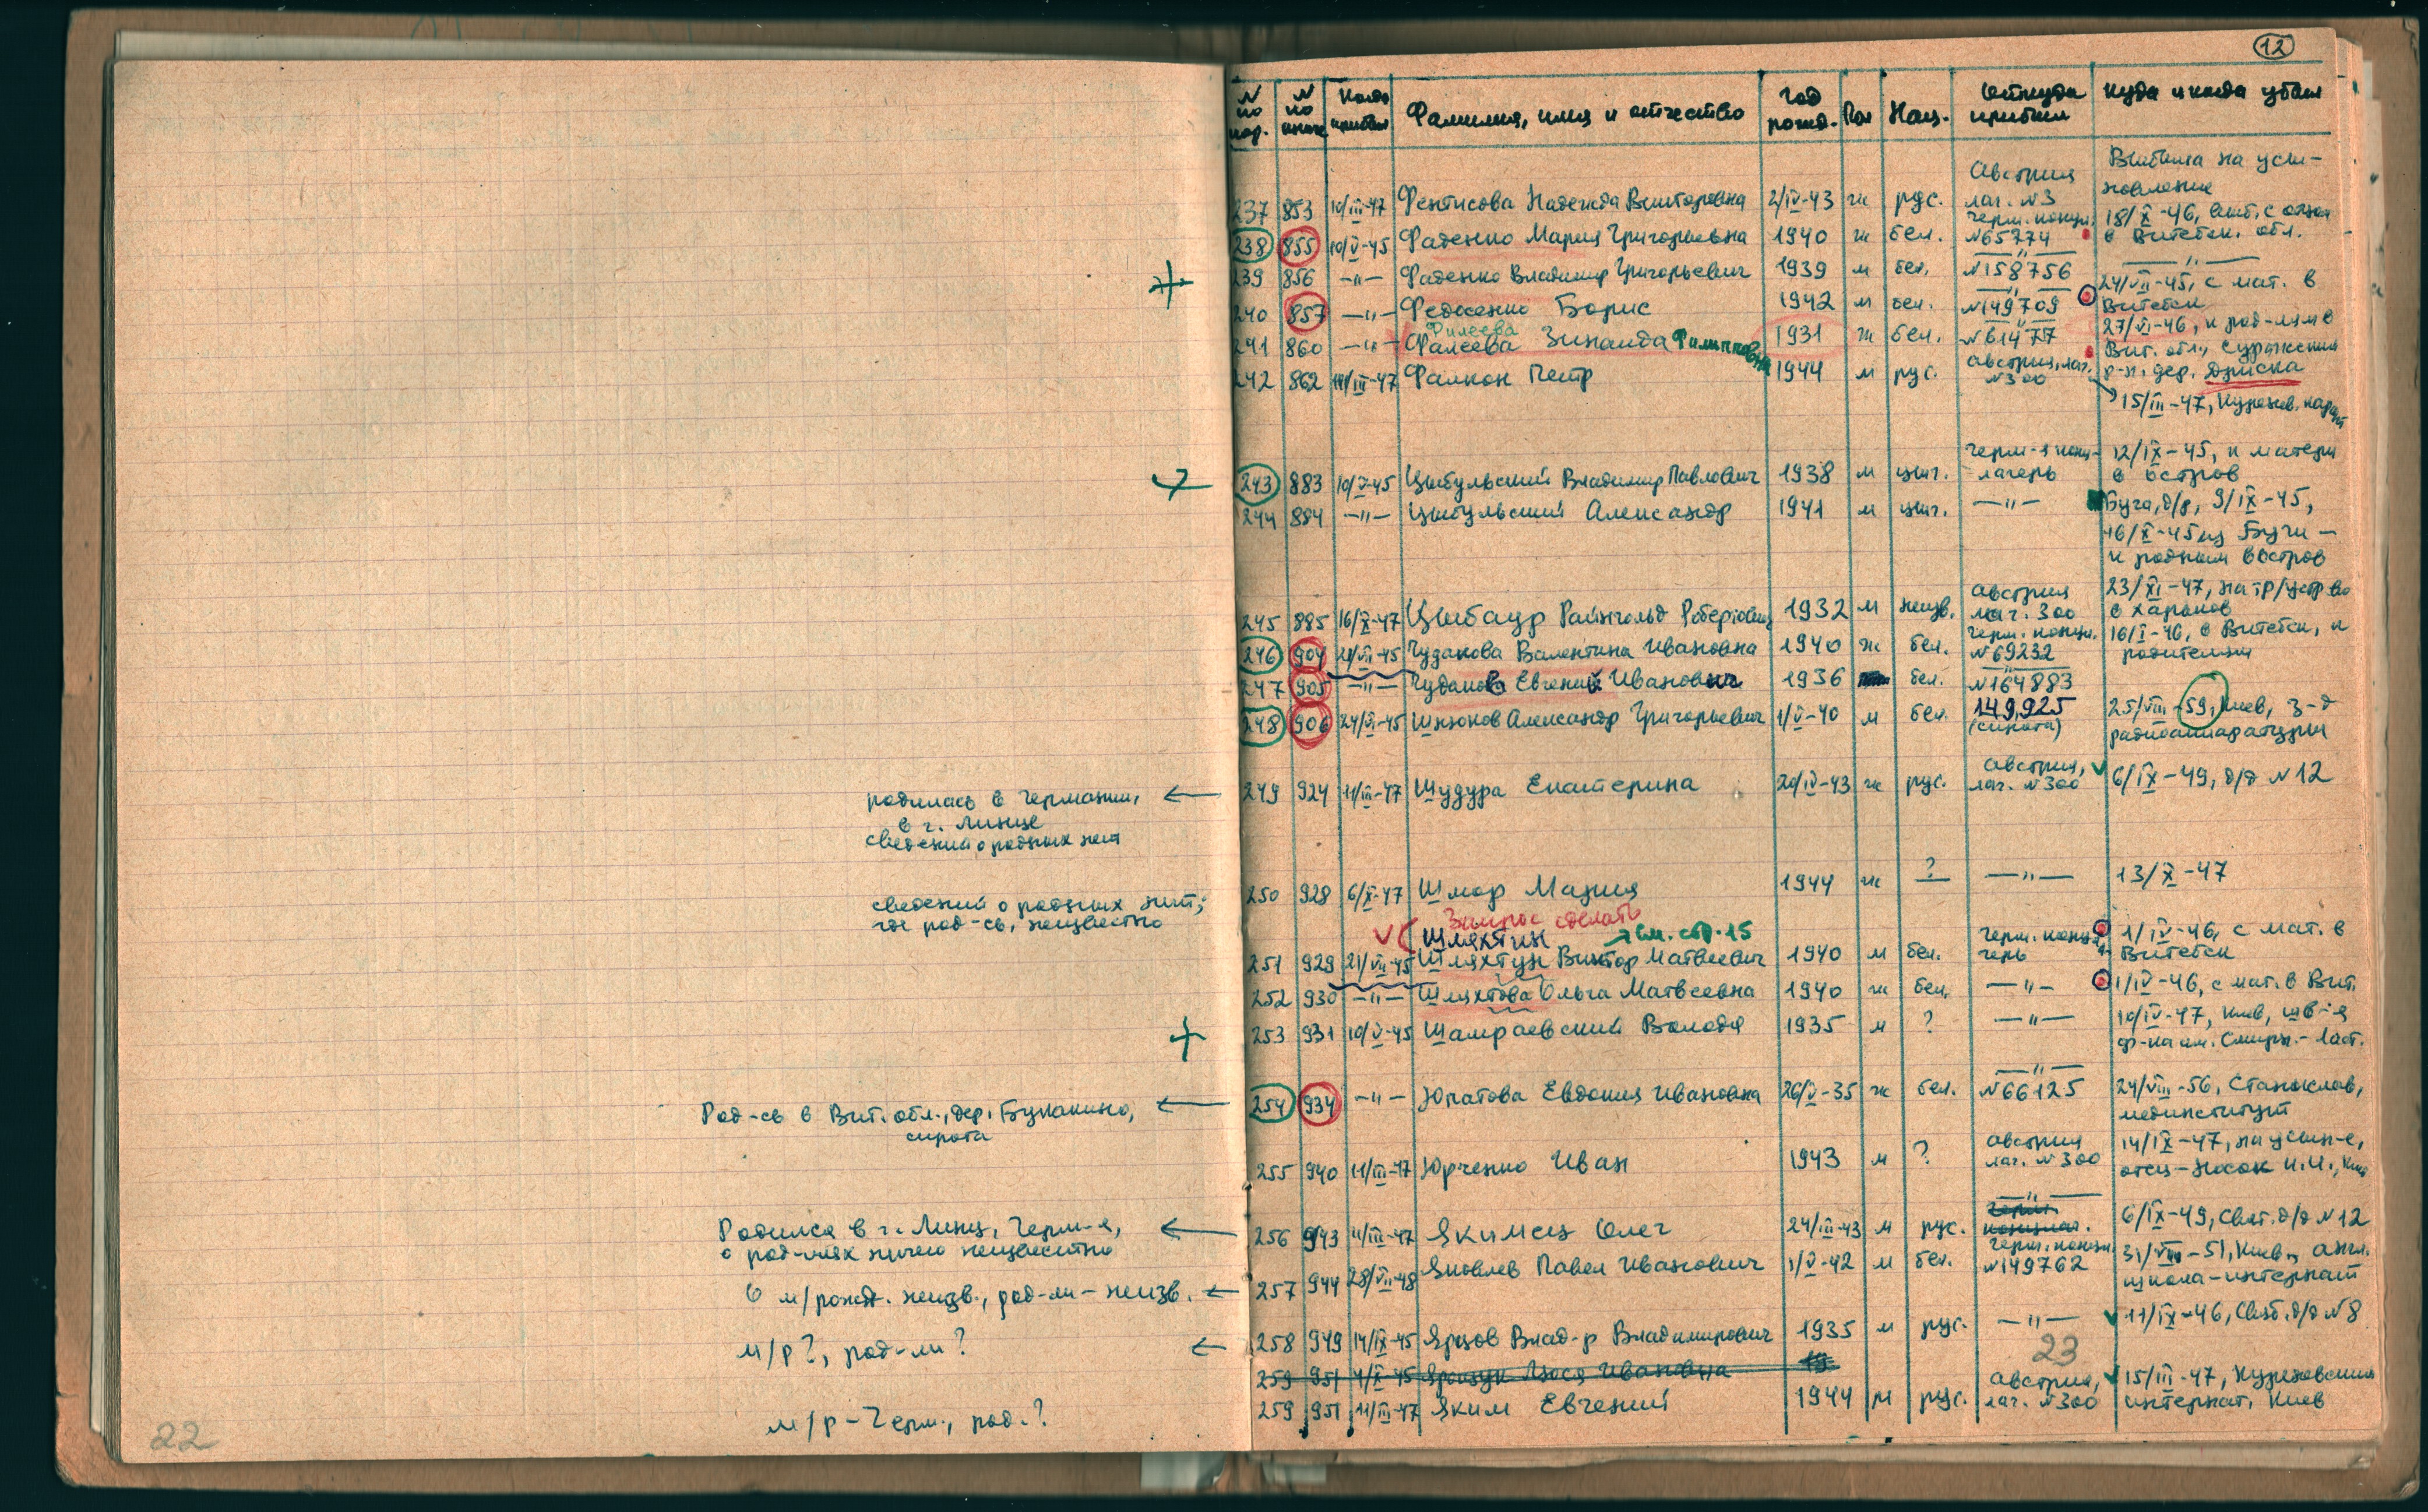 родилась в Германии,
в г. Линце
сведений о родных нет
сведений о родных нет;
где род-сь, неизвестно
Род-сь в Вит. обл., дер. Букакино,
сирота
Родился в г. Линц, Герм-я,
о род-лях ничего неизвестно
О м/рожд. неизв., род-ли - неизв.
м/р?, род-ли?
м/р - Герм., род.?
22
12
N по пор. N по книге Когда прибыл Фамилия, имя и отчество Год рожд. Пол Нац. Откуда прибыл Куда и когда убыл
237 853 10/III-47 Фентисова Надежда Викторовна 2/IV-43 ж рус. Австрия лаг. N3 Выбыла на усы-новление
238 855 10/V-45 Фаденко Мария Григорьевна 1940 ж бел. Герм. концл. N65774 18/X-46, выб. с отцом в Витебск. обл.
239 856 -"- Фаденко Владимир Григорьевич 1939 м бел. -"- N158756 -"-
240 857 -"- Федосенко Борис 1942 м бел. -"- N149709 24/VII-45, с мат. в Витебск
Филеева
241 860 -"- Фалеева Зинаида Филипповна 1931 ж бел. -"- N61477 27/VI-46, к род-лям в Вит. обл., Суражский р-н, дер. Дриска
242 862 11/III-47 Фалкон Петр 1944 м рус. Австрия, лаг. N300 15/III-47, Куренев.
243 883 10/V-45 Цыбульский Владимир Павлович 1938 м цыг. Герм-я конц-лагерь 12/IX-45, к матери в Остров
244 884 -"- Цыбульский Александр 1941 м цыг. -"- Буча, д/д, 9/IX-45, 16/X-45 из Бучи - к родным в Остров
245 885 16/X-47 Цыбаур Райнгольд Робертович 1932 м неизв. Австрия лаг. 300 23/XI-47, на тр/устр-во в Харьков
246 904 21/VII-45 Чудакова Валентина Ивановна 1940 ж бел. Герм. концл. N69232 16/I-46, в Витебск, к родителям
247 905 -"- Чудаков Евгений Иванович 1936 бел. -"- N164883
248 906 24/VI-45 Шклоков Александр Григорьевич 1/V-40 м бел. 149,925 (сирота) 25/VIII-59, Киев, з-д радиоаппаратуры
249 924 11/III-47 Шудура Екатерина 20/IV-43 ж рус. Австрия, лаг. N300 6/IX-49, д/д N12
250 928 6/X-47 Шмор Мария 1944 ж ? -"- 13/X-47
Запрос сделать
Шляхтин → см. стр. 15
251 929 21/VII-45 Шляхтун Виктор Матвеевич 1940 м бел. Герм. конц. 1/IV-46, с мат. в Витебск
252 930 -"- Шляхтова Ольга Матвеевна 1940 ж бел. -"- 1/IV-46, с мат. в Вит.
253 931 10/V-45 Шамраевский Володя 1935 м ? -"- 10/IV-47, Киев, шв-я ф-ка им. Смирн.-Ласт.
254 934 -"- Юпатова Евдокия Ивановна 26/V-35 ж бел. -"- N66125 24/VIII-56, Станислав, мединститут
255 940 11/III-47 Юрченко Иван 1943 м ? Австрия лаг. N300 14/IX-47, на усын-е, отец - Носок И.И., Киев
256 943 11/III-47 Якимец Олег 24/III-43 м рус. -"- Герм. концлаг. 6/IX-49, Свят. д/д N12
257 944 28/VII-48 Яковлев Павел Иванович 1/V-42 м бел. Герм. концл. N149762 31/VIII-51, Киев, англ. школа-интернат
258 949 14/IX-45 Ярцов Влад-р Владимирович 1935 м рус. -"- 11/IX-46, Свят. д/д N8
23
259 951 4/X-45 Ярощук Люся Ивановна 19
259 951 11/III-47 Яким Евгений 1944 м рус. Австрия, лаг. N300 15/III-47, Куреневский интернат, Киев